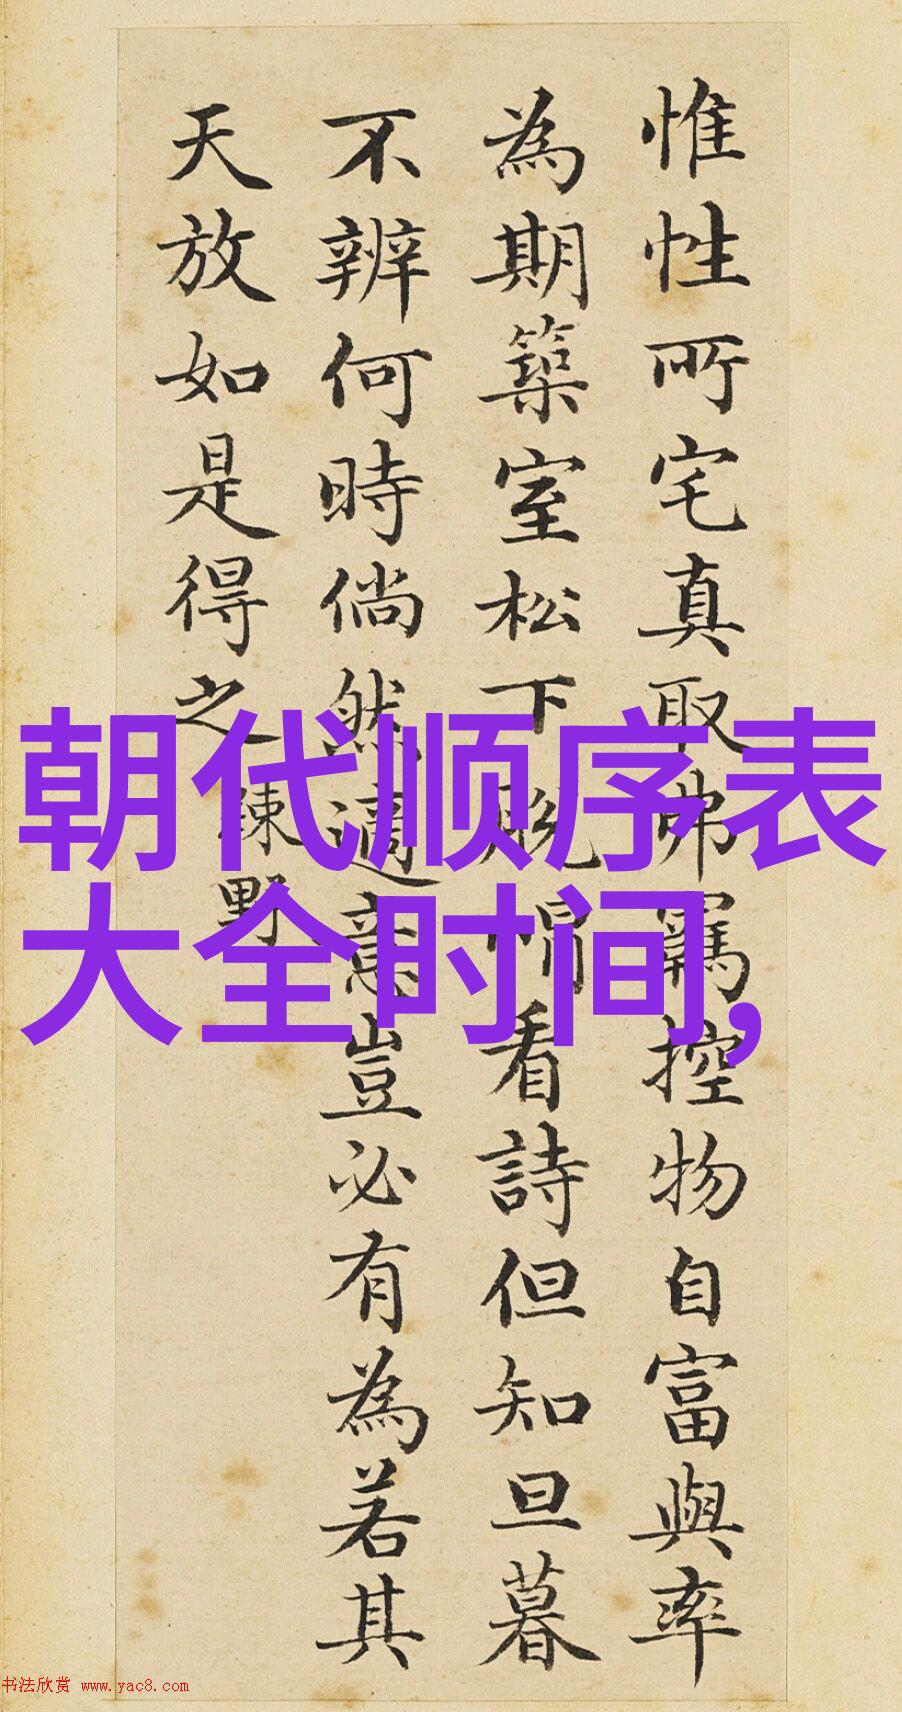 惟性所宅真取弗羈控物自富與率
為期築室松下脫帽看詩但知旦暮
不辨何時倘然適意豈必有為若其
天放如是得之
疎野
朝代顺序表
大全时间,
书法欣赏 www.yac8.com